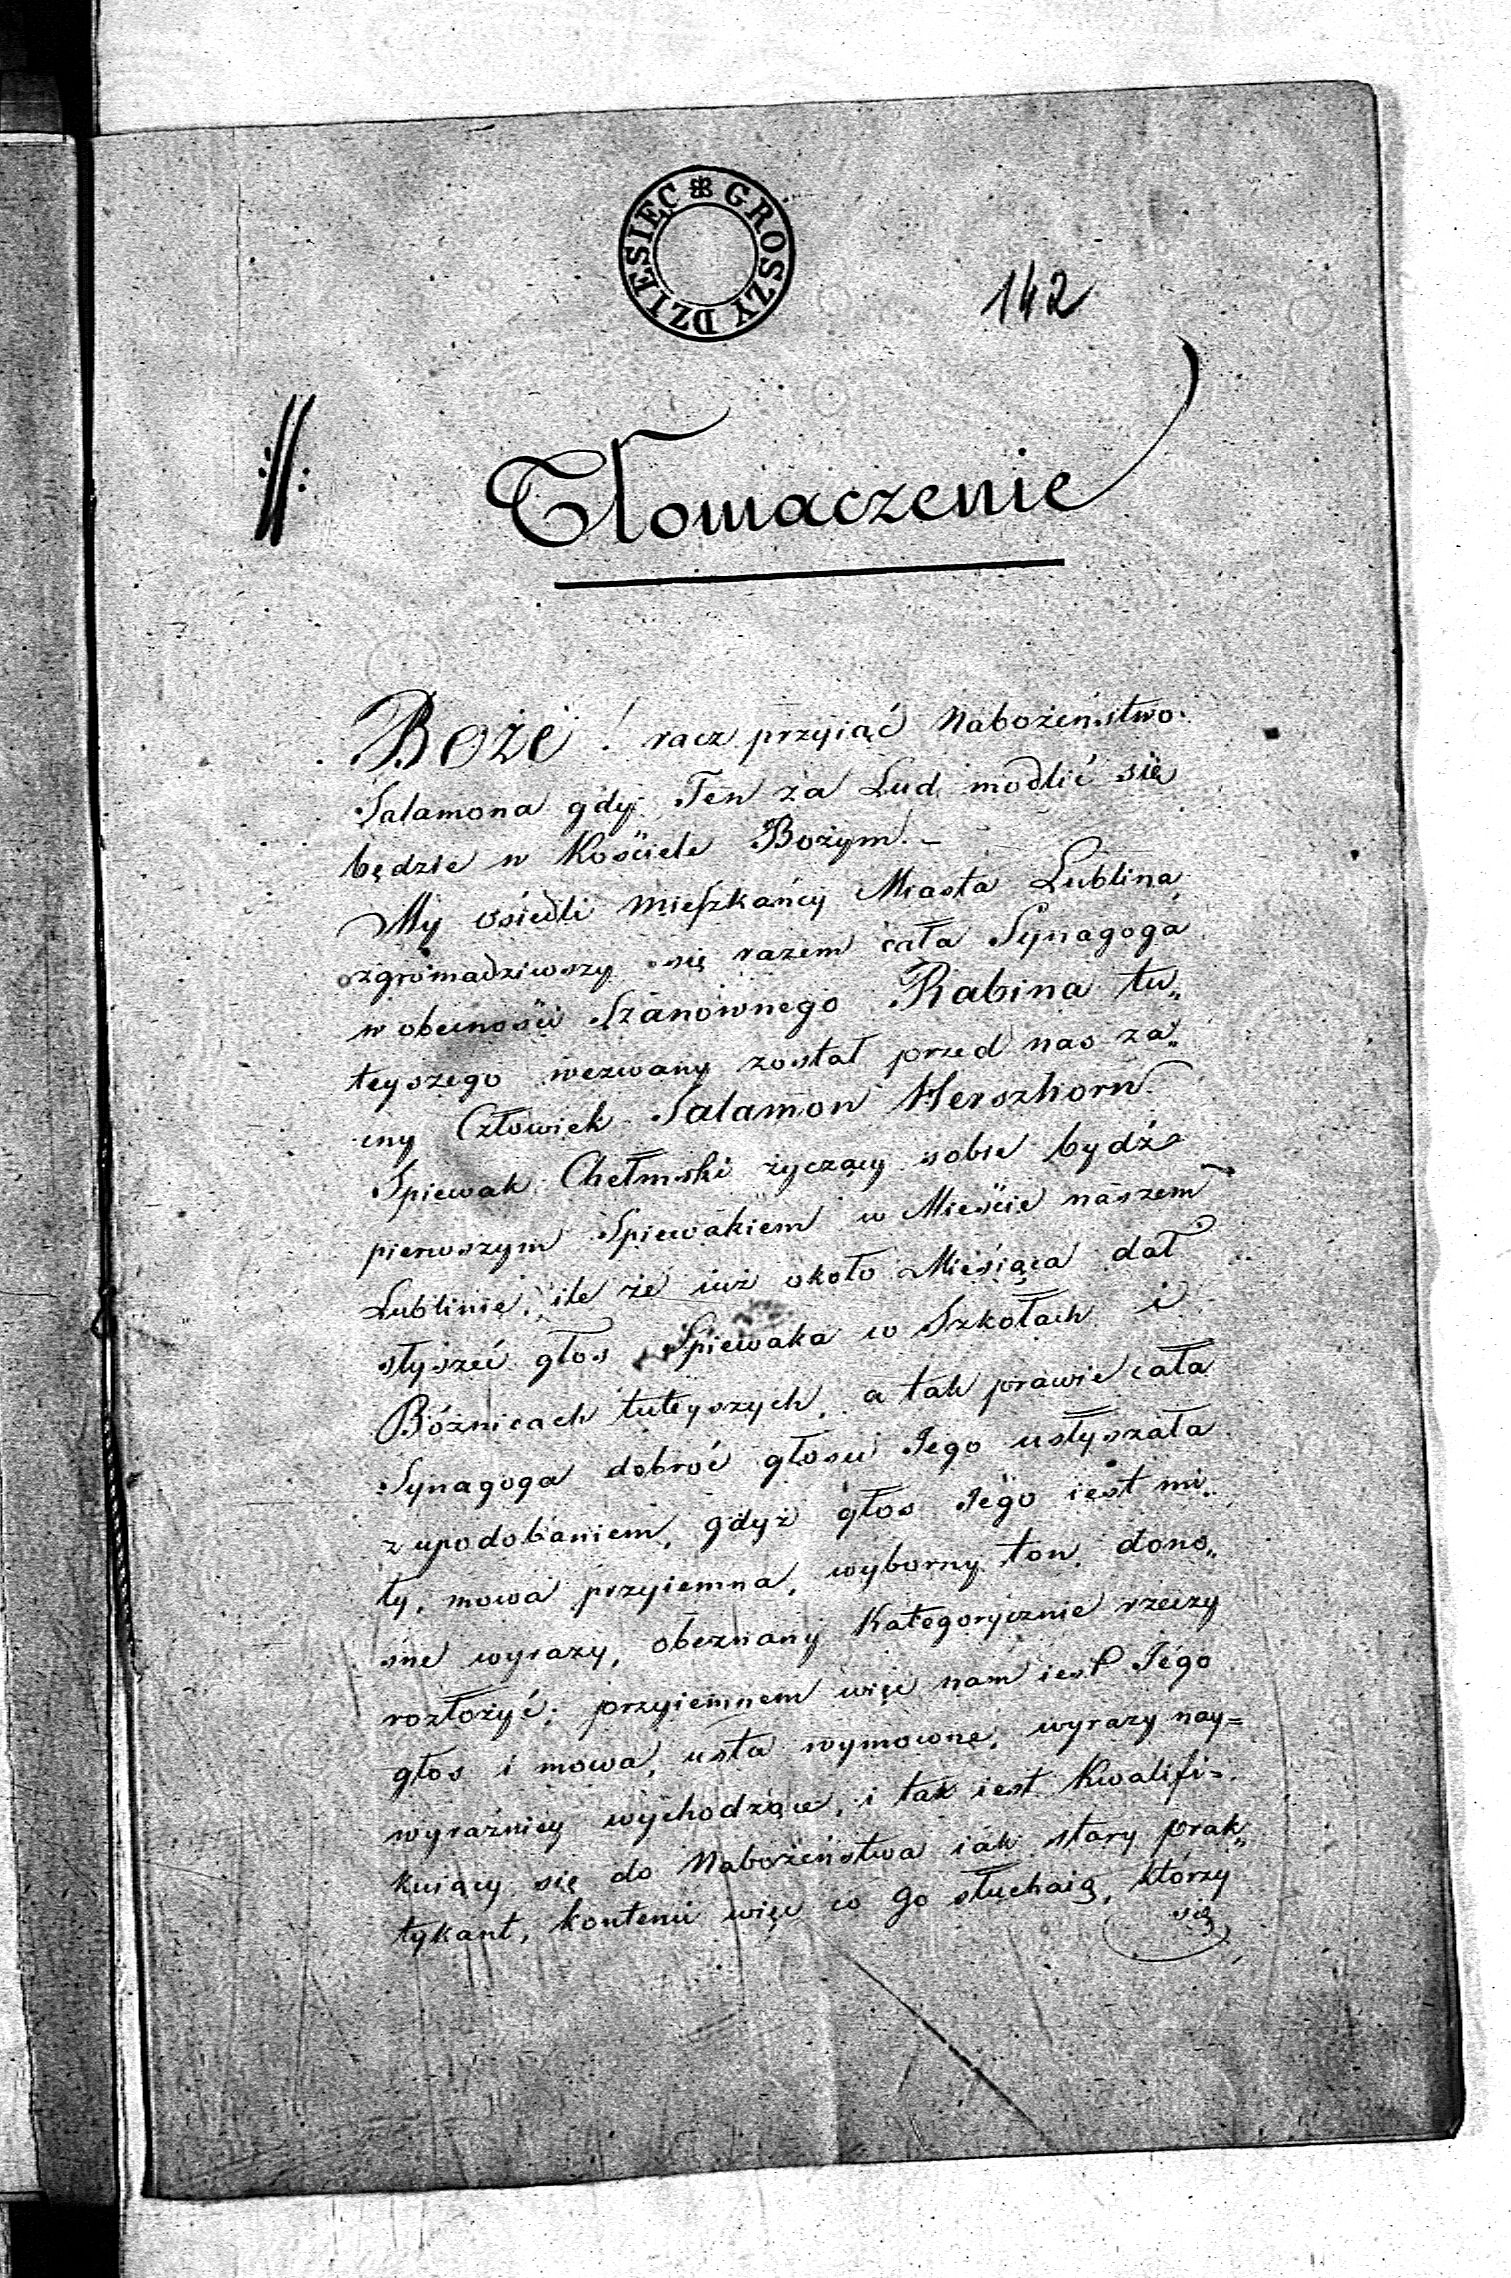 GROSZY DZIESIĘĆ
142
Tłomaczenie
Boże! racz przyiąć Nabożeństwo
Salamona gdy Ten za Lud modlić się
będzie w Kościele Bożym. –
My osiedli Mieszkańcy Miasta Lublina
zgromadziwszy się razem cała Synagoga
w obecności Szanownego Rabina tu„
teyszego wezwany został przed nas za„
cny Człowiek Salamon Herszhorn
Spiewak Chełmski życzący sobie bydź
pierwszym Spiewakiem w Mieście naszem
Lublinie, ile że iuż około Miesiąca dał
słyszeć głos Spiewaka w Szkołach i
Bóżnicach tuteyszych, a tak prawie cała
Synagoga dobroć głosu Jego usłyszała
z upodobaniem, gdyż głos Jego iest mi„
ły, mowa przyiemna, wyborny ton, dono„
sne wyrazy, obeznany Kategorycznie rzeczy
rozłożyć; przyiemnem więc nam iest Jego
głos i mowa, usta wymowne, wyrazy nay=
wyraźniey wychodzące, i tak iest Kwalifi=
kuiący się do Nabożeństwa iak stary prak„
tykant, kontenci więc co go słuchaią, którzy
się